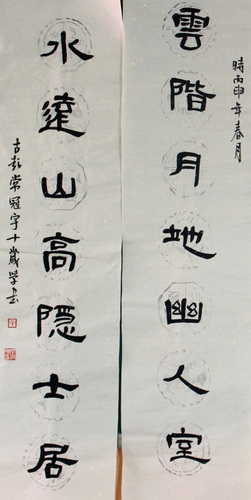 時丙申年春月
雲階月地幽人室
水遠山高隐士居
古彭常冠宇十歲學書